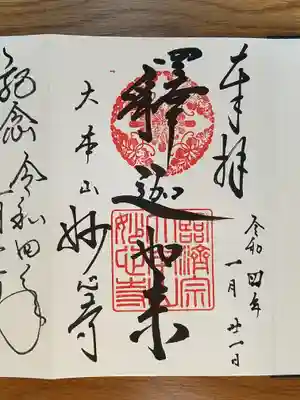 奉拝
令和四年
一月廿一日
釋迦如来
臨済宗
大本山
妙心寺
大本山
妙心寺
記念
令和四年